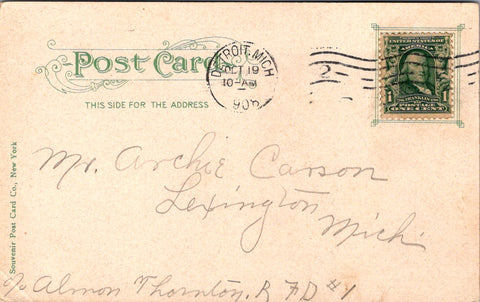 Post Card
THIS SIDE FOR THE ADDRESS
DETROIT, MICH
OCT 19
10-AM
1906
2
UNITED STATES OF AMERICA
1
FRANKLIN
POSTAGE ONE CENT
Mr. Archie Carson
Lexington
Mich.
c/o Almon Thornton, R F D #1
Souvenir Post Card Co., New York